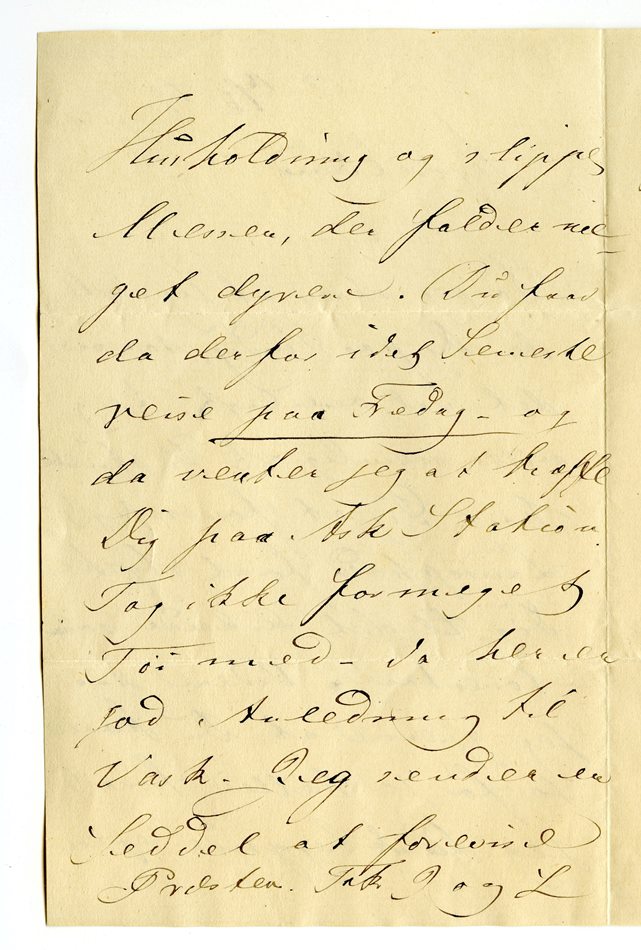 Huusholdning og slippe
Messen, der falder no-
get dyrere. Du faar
da derfor idet seneste
reise paa Fredag - og
da venter jeg at træffe
Dig paa Ask Station.
Tag ikke formeget
Töi med - da her er
god Anledning til
Vask. Jeg sender en
Seddel at forevise
Præsten. og L